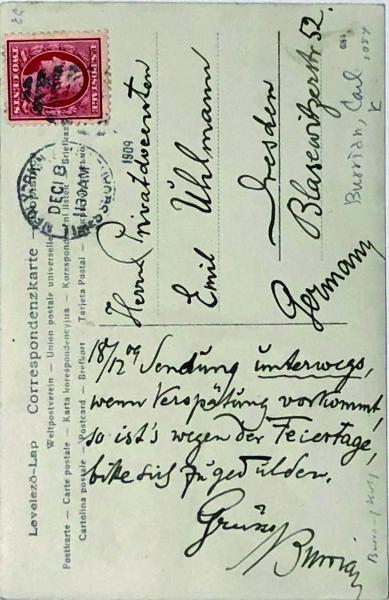 Levelező-Lap — Correspondenzkarte
Weltpostverein — Union postale universelle
Postkarte — Carte postale — Karta korespondencyjna — Korespondenční lístek
Cartolina postale — Postcard — Brefkort — Tarjeta Postal
U.S. POSTAGE
TWO CENTS
DEC 18
1130AM
1909
Herrn Privatdocenten
Emil Uhlmann
Dresden
Blasewitzerstr 52.
Germany
684
Burrian, Carl
K
18/12 09 Sendung unterwegs,
wenn Verspätung vorkommt,
so ist's wegen der Feiertage,
bitte sich zu gedulden.
Gruss
Burrian